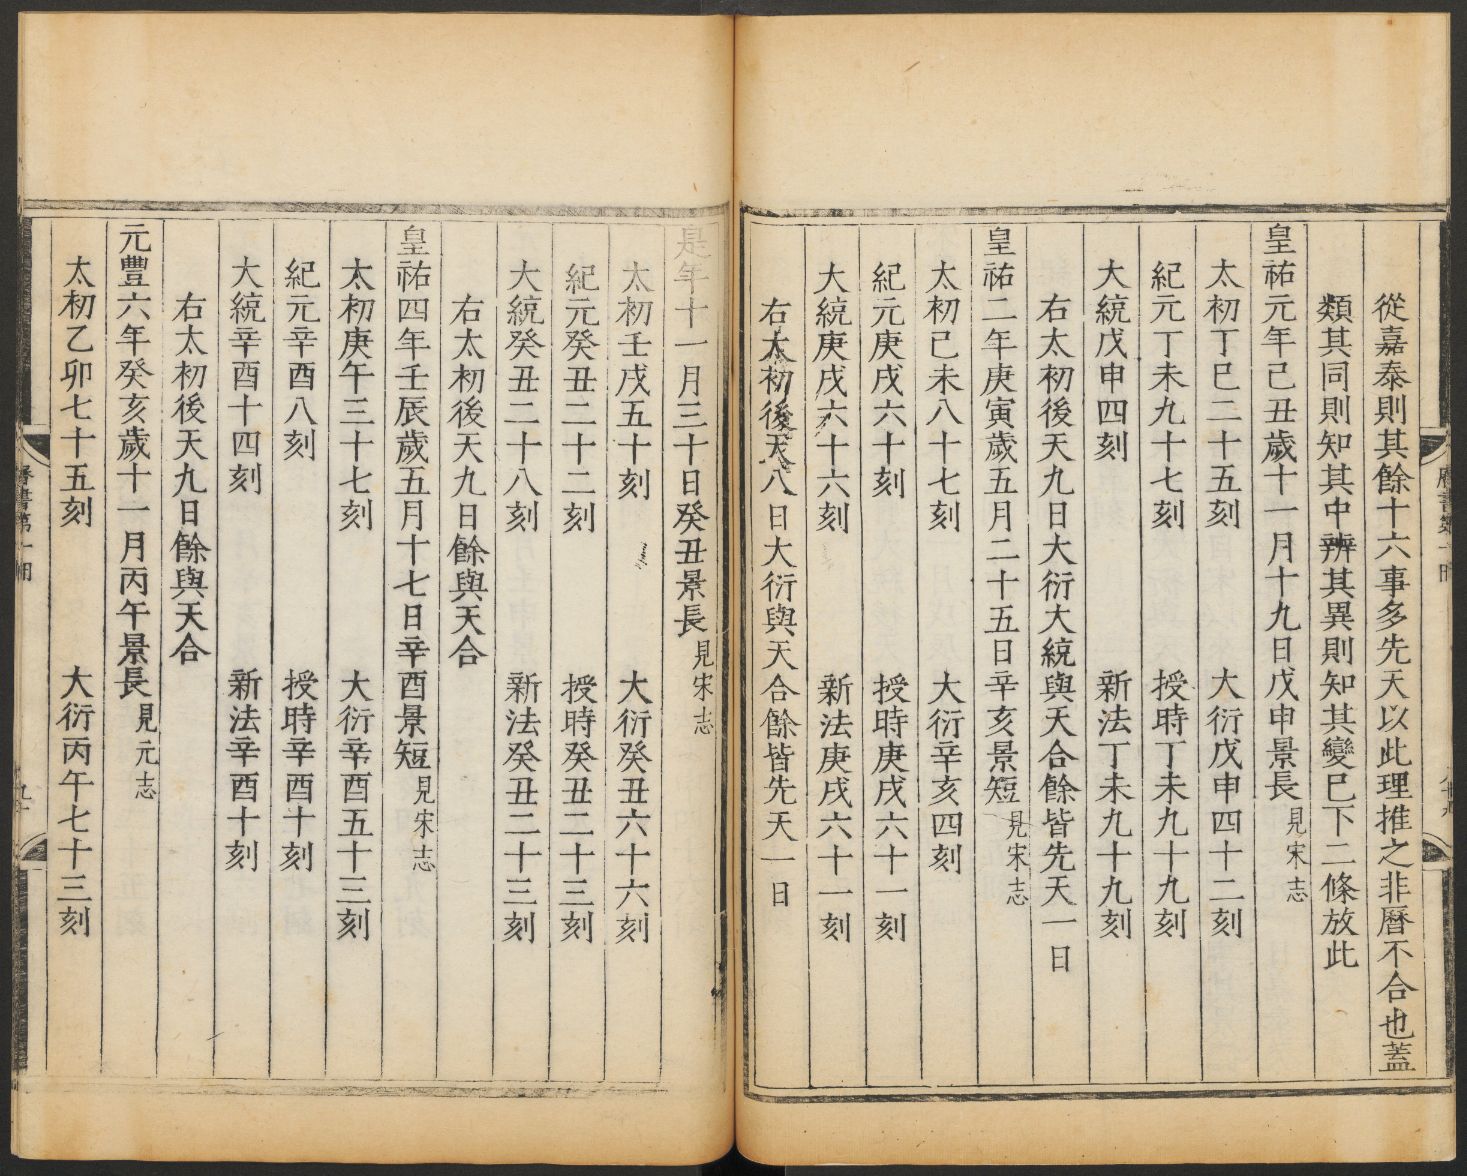 從嘉泰則其餘十六事多先天以此理推之非曆不合也蓋
類其同則知其中辨其異則知其變巳下二條放此
皇祐元年己丑歲十一月十九日戊申景長見宋志
太初丁巳二十五刻　大衍戊申四十二刻
紀元丁未九十七刻　授時丁未九十九刻
大統戊申四刻　新法丁未九十九刻
右太初後天九日大衍大統與天合餘皆先天一日
皇祐二年庚寅歲五月二十五日辛亥景短見宋志
太初己未八十七刻　大衍辛亥四刻
紀元庚戌六十刻　授時庚戌六十一刻
大統庚戌六十六刻　新法庚戌六十一刻
右太初後天八日大衍與天合餘皆先天一日
是年十一月三十日癸丑景長見宋志
太初壬戌五十刻　大衍癸丑六十六刻
紀元癸丑二十二刻　授時癸丑二十三刻
大統癸丑二十八刻　新法癸丑二十三刻
右太初後天九日餘與天合
皇祐四年壬辰歲五月十七日辛酉景短見宋志
太初庚午三十七刻　大衍辛酉五十三刻
紀元辛酉八刻　授時辛酉十刻
大統辛酉十四刻　新法辛酉十刻
右太初後天九日餘與天合
元豐六年癸亥歲十一月丙午景長見元志
太初乙卯七十五刻　大衍丙午七十三刻